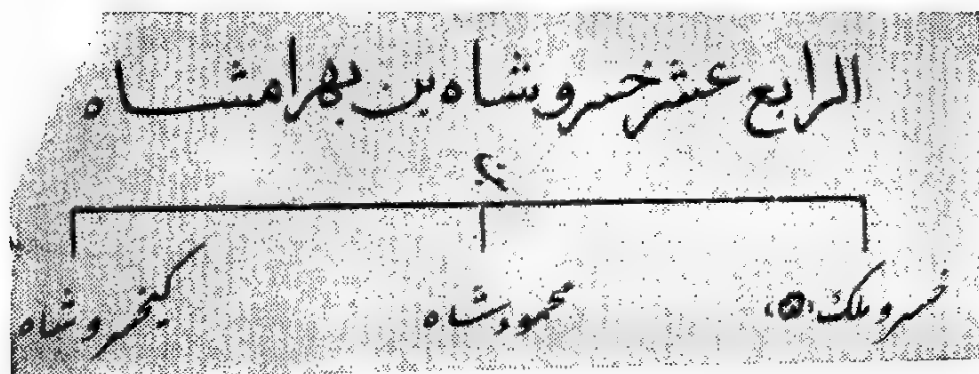 الرابع عشر خسرو شاه بن بهرامشاه
خسرو ملك (۵) محمود شاه كيخسرو شاه